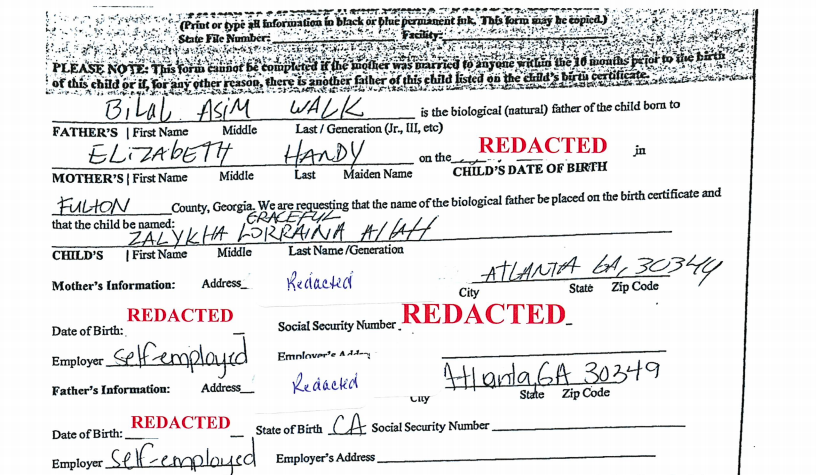 (Print or type all information in black or blue permanent ink. This form may be copied.)
State File Number: Facility:
PLEASE NOTE: This form cannot be completed if the mother was married to anyone within the 10 months prior to the birth
of this child or if, for any other reason, there is another father of this child listed on the child's birth certificate.
BiLaL ASiM WALK is the biological (natural) father of the child born to
FATHER'S | First Name Middle Last / Generation (Jr., III, etc)
ELIZABETH HANDY on the REDACTED in
MOTHER'S | First Name Middle Last Maiden Name CHILD'S DATE OF BIRTH
FULTON County, Georgia. We are requesting that the name of the biological father be placed on the birth certificate and
that the child be named: GRACEFUL
ZALYKHA LORRAINA AllAH
CHILD'S | First Name Middle Last Name /Generation
Mother's Information: Address Redacted ATLANTA GA, 30344
City State Zip Code
Date of Birth: REDACTED Social Security Number REDACTED
Employer Self-employed Employer's
Father's Information: Address Redacted Atlanta, GA 30349
City State Zip Code
Date of Birth: REDACTED State of Birth CA Social Security Number
Employer Self-employed Employer's Address